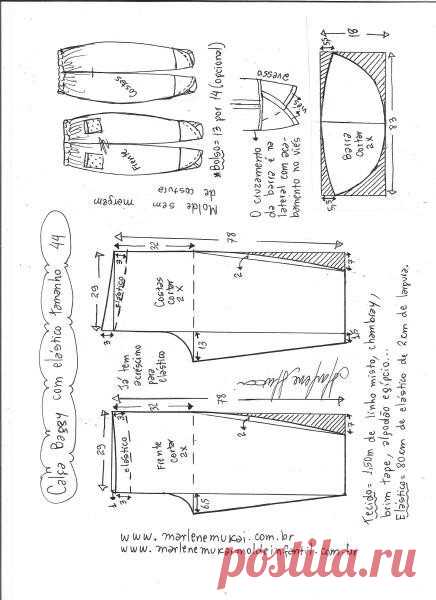 Calça Baggy com elástico tamanho 44
Costas
Frente
*Bolso = 13 por 14 (opcional)
Molde sem
margem
de costura
avesso
viés
O cruzamento
da barra é na
lateral com aca-
bamento no viés
18
5,5
83
Barra
cortar
2x
5,5
78
32
29
3
3
elástico
Costas
cortar
2x
2
7
13
1,5
Já tem
acréscimo
para
elástico
Marlene Mukai
78
32
29
3
elástico
Frente
cortar
2x
2
7
1
3
6,5
Tecido = 1,50m de linho misto, chambray,
brim tape, algodão egípcio...
Elástico = 80cm de elástico de 2cm de largura.
www.marlenemukai.com.br
www.marlenemukaimoldeinfantil.com.br
postila.ru